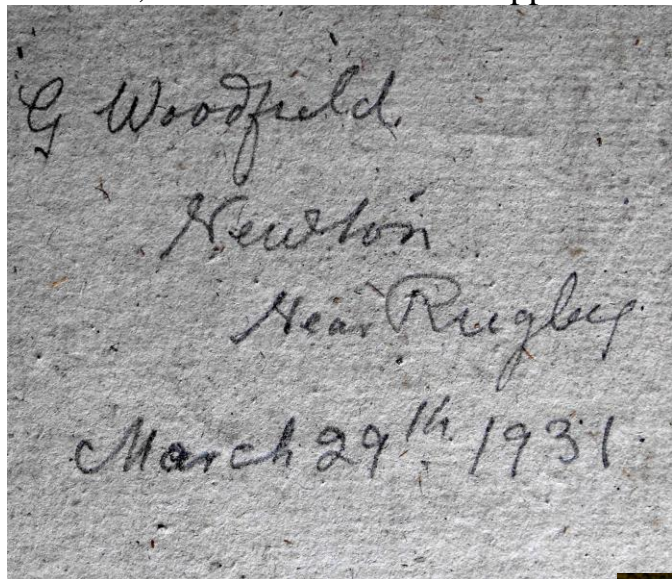 G Woodfield.
Newton
Near Rugby.
March 29th. 1931.